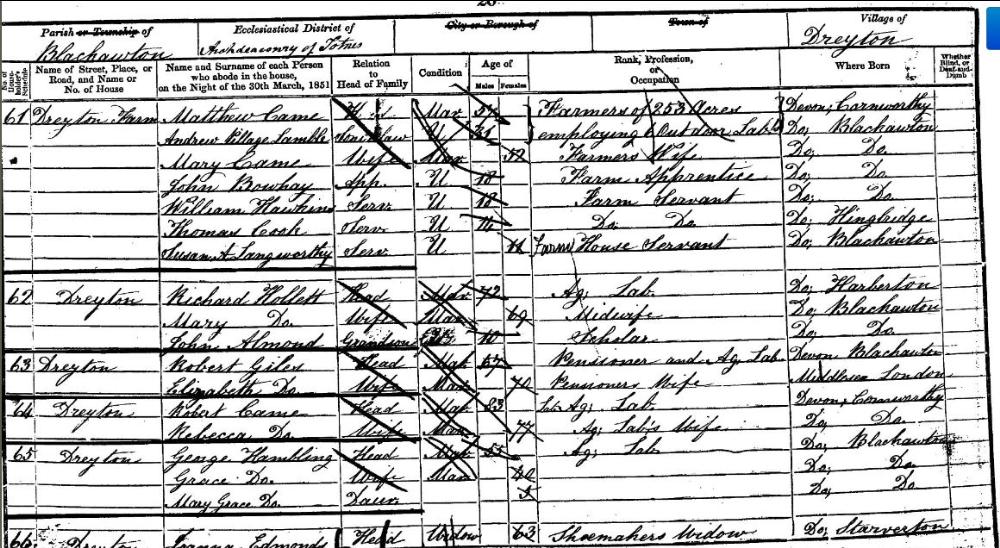 Parish or Township of
Blackawton
Ecclesiastical District of
Archdeaconry of Totnes
City or Borough of
Town of
Village of
Dreyton
Name of Street, Place, or Road, and Name or No. of House
Name and Surname of each Person who abode in the house, on the Night of the 30th March, 1851
Relation to Head of Family
Condition
Age of
Males Females
Rank, Profession, or Occupation
Where Born
Whether Blind, or Deaf-and-Dumb
61 Dreyton Farm Matthew Came Head Mar Farmers of 253 Acres Devon, Cornworthy
Andrew Pillage Lamble U employing 6 Out door Lab Do, Blackawton
Mary Came Wife Mar 52 Farmers Wife Do, Do
John Bowhay App. U 18 Farm Apprentice Do, Do
William Hawkins Serv. U 18 Farm Servant Do, Do
Thomas Cook Serv. U 14 Do Do Do,
Susan A Langworthy Serv. U Farm House Servant Do, Blackawton
62 Dreyton Richard Hollett Head Mar 72 Ag. Lab. Do, Harberton
Mary Do. Wife Mar 69 Midwife Do, Blackawton
John Almond Grandson 10 Scholar Do, Do
63 Dreyton Robert Giles Head Mar Pensioner and Ag. Lab Devon Blackawton
Elizabeth Do. Wife Mar 70 Pensioners Wife Middlesex London
64 Dreyton Robert Came Head Mar 83 Ag. Lab. Devon, Cornworthy
Rebecca Do. Wife Mar 77 Ag. Lab's Wife Do, Do.
65 Dreyton George Hambling Head Mar 55 Ag. Lab Do, Blackawton
Grace Do. Wife Mar 40 Do, Do.
Mary Grace Do. Daur. Do, Do
66 Dreyton Joanna Edmonds Head Widow 63 Shoemakers Widow Do, Starverton